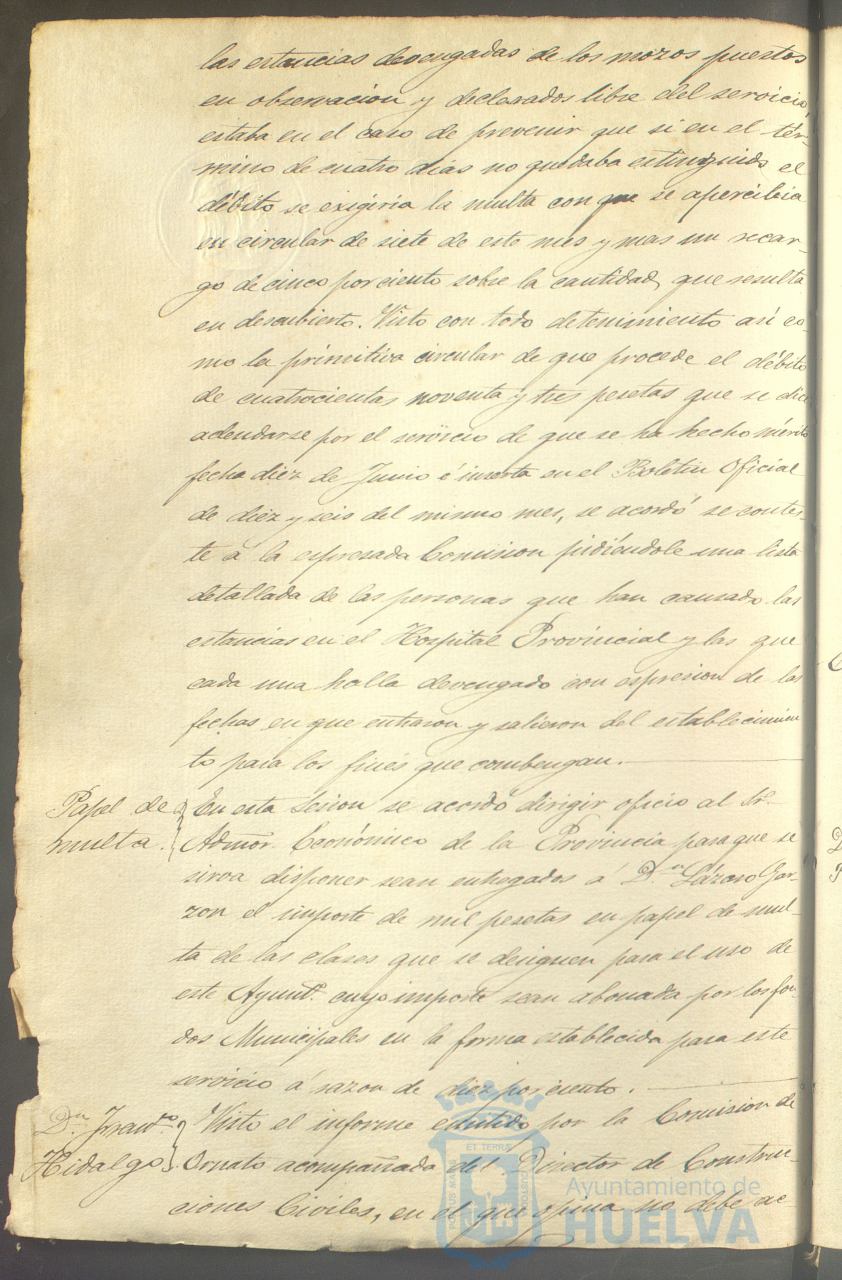 las estancias devengadas de los mozos puestos
en observacion y declarados libre del servicio,
estaba en el caso de prevenir que si en el tér-
mino de cuatro dias no quedaba estinguido el
débito se exigiria la multa con que se apercibia
en circular de siete de este mes y mas un recar-
go de cinco por ciento sobre la cantidad que resulta
en descubierto. Visto con todo detenimiento asi co-
mo la primitiva circular de que procede el débito
de cuatrocientas noventa y tres pesetas que se dice
adeudarse por el servicio de que se ha hecho mérito
fecha diez de Junio é inserta en el Boletin Oficial
de diez y seis del mismo mes, se acordó se contes-
te á la espresada Comision pidiéndole una lista
detallada de las personas que han causado las
estancias en el Hospital Provincial y las que
cada una halla devengado con espresion de las
fechas en que entraron y salieron del establecimien
to para los fines que combengan.
Papel de multa.
En esta Sesion se acordó dirigir oficio al Sr.
Admor. Económico de la Provincia para que se
sirva disponer sean entregados á Dn. Lázaro Gar-
zon el importe de mil pesetas en papel de mul-
ta de las clases que se designen para el uso de
este Ayuntº. cuyo importe sean abonada por los fon-
dos Municipales en la forma establecida para este
servicio á razon de diez por ciento.
Dn. Franco. Hidalgo
Visto el informe emitido por la Comision de
Ornato acompañada del Director de Construc-
ciones Civiles, en el que opina no debe ac-
PORTUS MARIS ET TERRÆ CUSTODIA
Ayuntamiento de
HUELVA